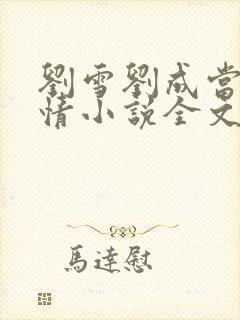 劉雪劉成當
情小說全文
馬達慰